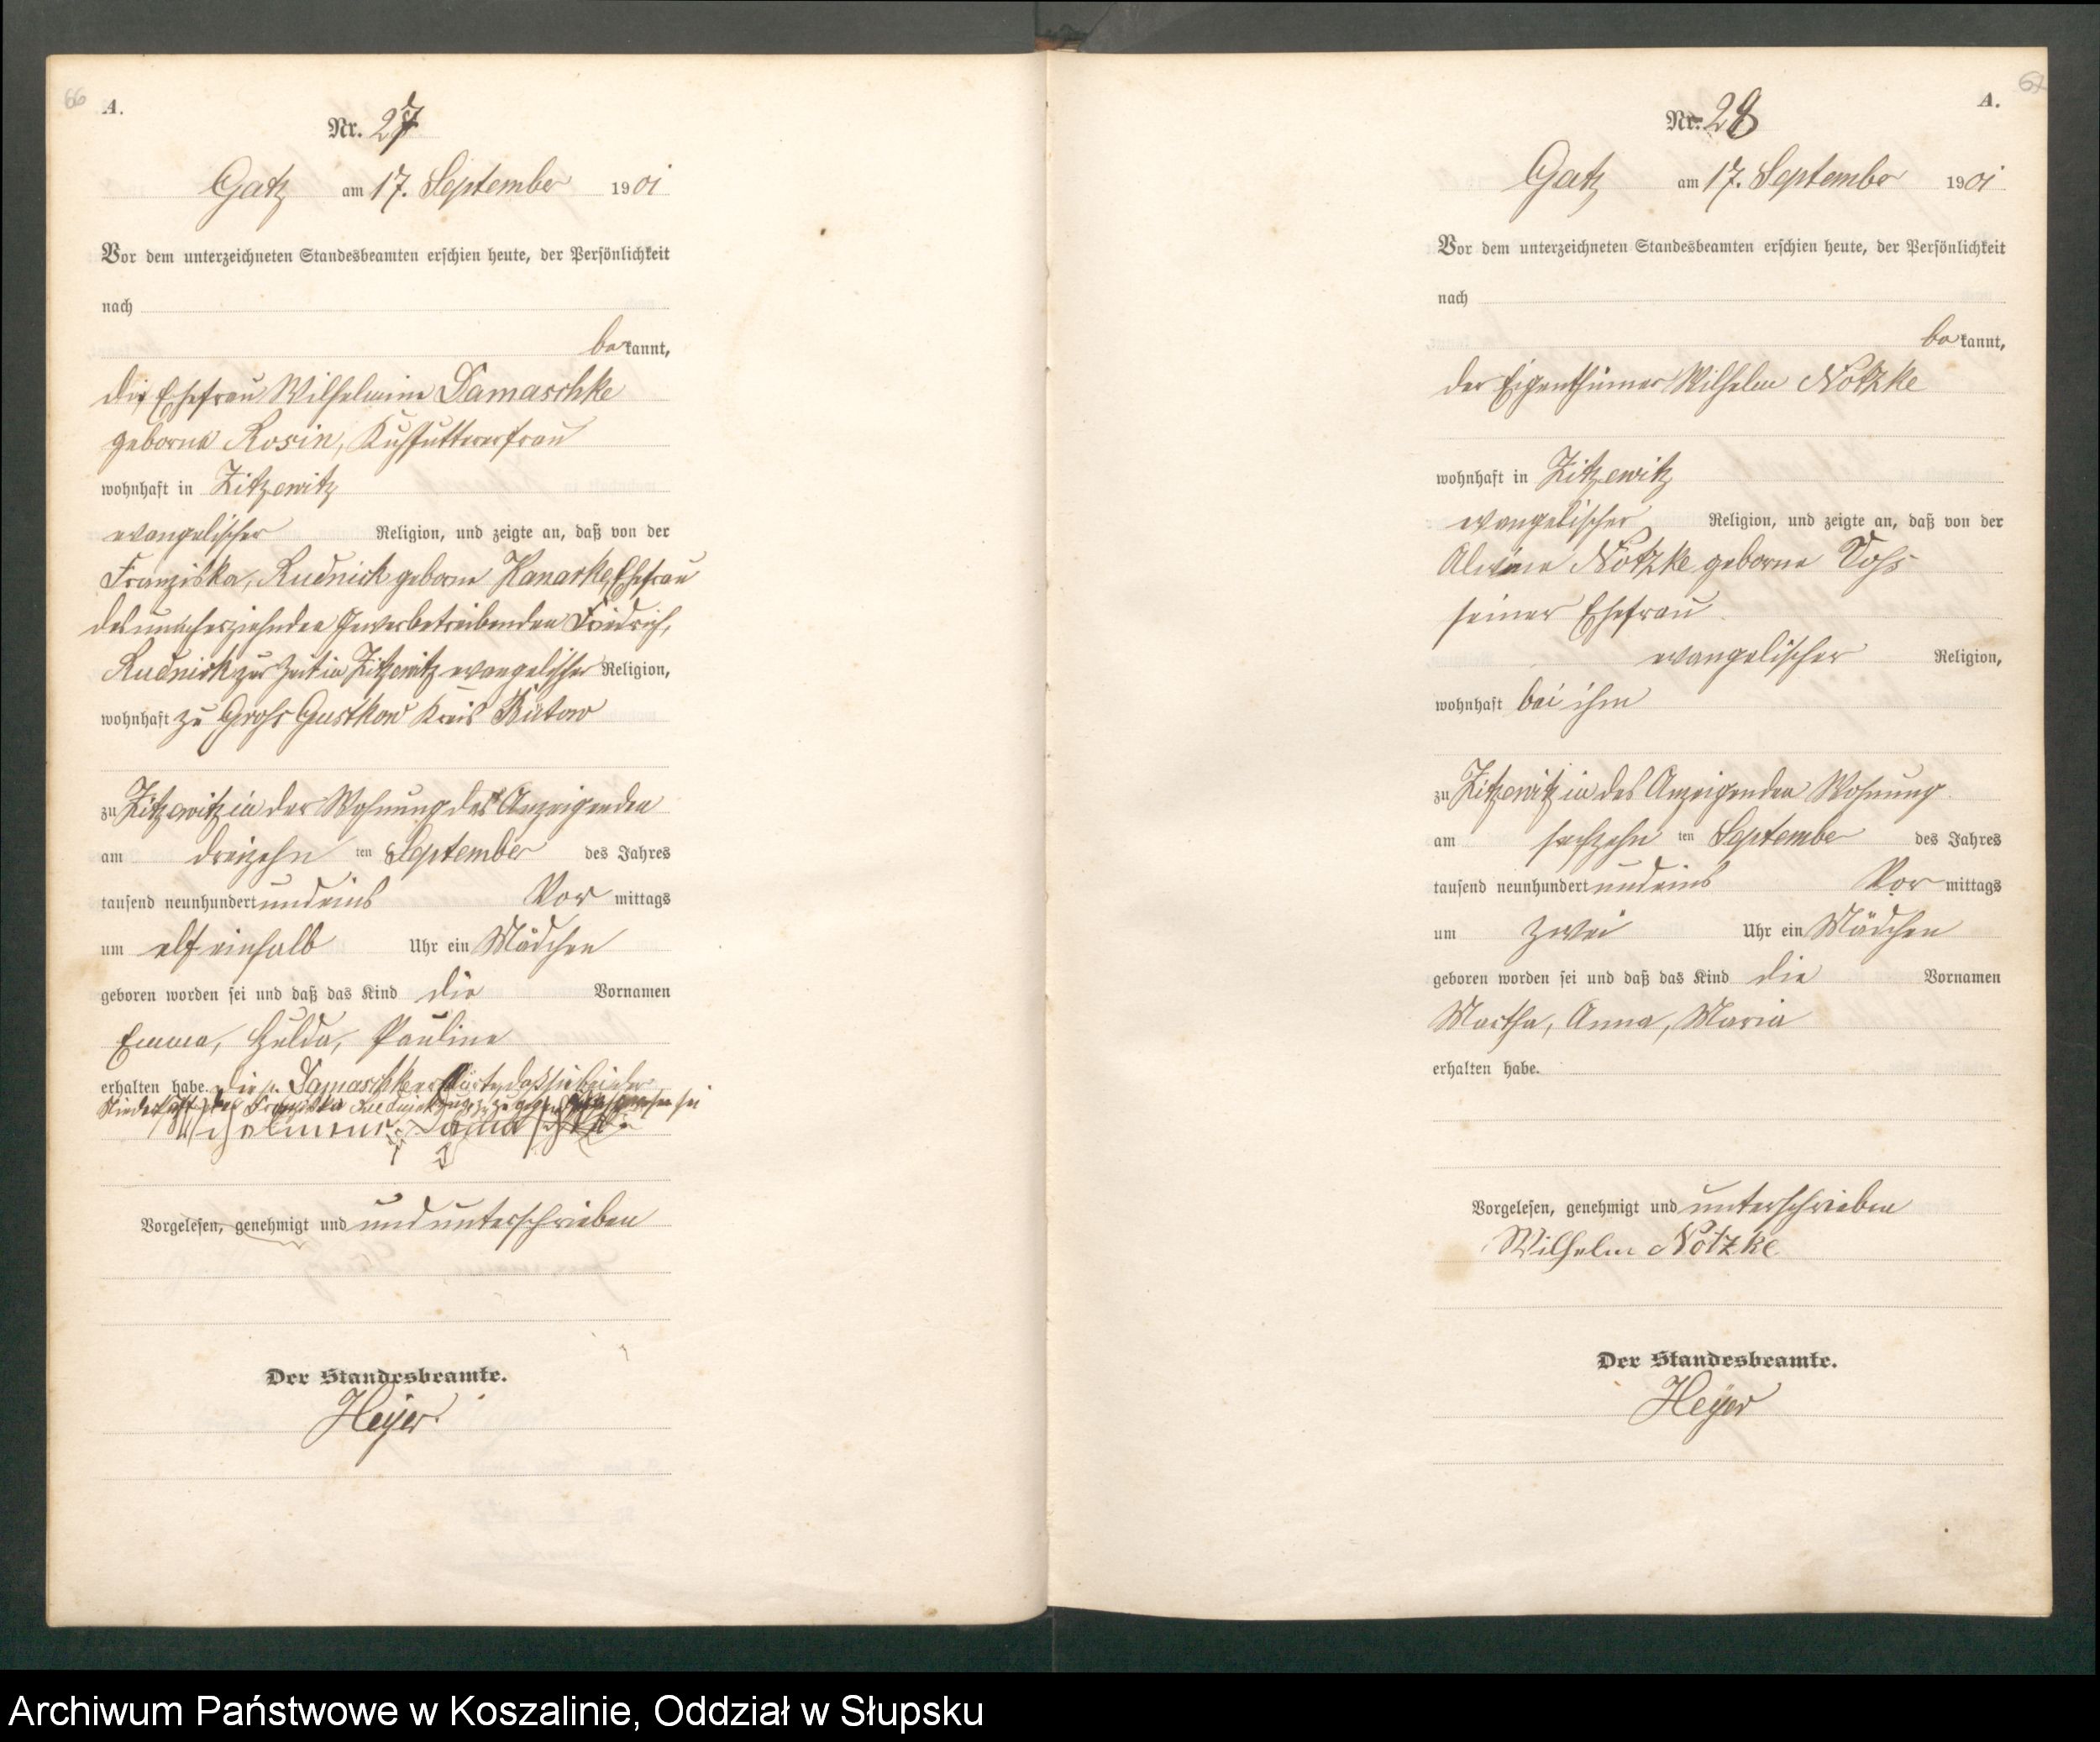 66
A.
Nr. 27
Gatz am 17. September 1901
Vor dem unterzeichneten Standesbeamten erschien heute, der Persönlichkeit
nach
bekannt,
die Ehefrau Wilhelmine Damaschke
geborne Rosin, Kuhfuttererfrau
wohnhaft in Zitzewitz
evangelischer Religion, und zeigte an, daß von der
Franziska, Rudnick geborne Kanarke, Ehefrau
des umherziehenden Gewerbetreibenden Friedrich,
Rudnick zur Zeit in Zitzewitz evangelischer Religion,
wohnhaft zu Groß Gustkow Kreis Bütow
zu Zitzewitz in der Wohnung des Anzeigenden
am dreizehn ten September des Jahres
tausend neunhundert und eins Vor mittags
um elf einhalb Uhr ein Mädchen
geboren worden sei und daß das Kind die Vornamen
Emma, Hulda, Pauline
erhalten habe. Die p. Damaschke erklärte, daß sie bei der
Niederkunft der Franziska Rudnick zugegen gewesen sei
Vorgelesen, genehmigt und und unterschrieben
Der Standesbeamte.
Heyer.
67
A.
Nr. 28
Gatz am 17. September 1901
Vor dem unterzeichneten Standesbeamten erschien heute, der Persönlichkeit
nach
bekannt,
der Eigenthümer Wilhelm Nötzke
wohnhaft in Zitzewitz
evangelischer Religion, und zeigte an, daß von der
Alwine Nötzke geborne Voß
seiner Ehefrau
evangelischer Religion,
wohnhaft bei ihm
zu Zitzewitz in des Anzeigenden Wohnung
am sechzehn ten September des Jahres
tausend neunhundert und eins Vor mittags
um zwei Uhr ein Mädchen
geboren worden sei und daß das Kind die Vornamen
Martha, Anna, Maria
erhalten habe.
Vorgelesen, genehmigt und unterschrieben
Wilhelm Nötzke
Der Standesbeamte.
Heyer
Archiwum Państwowe w Koszalinie, Oddział w Słupsku